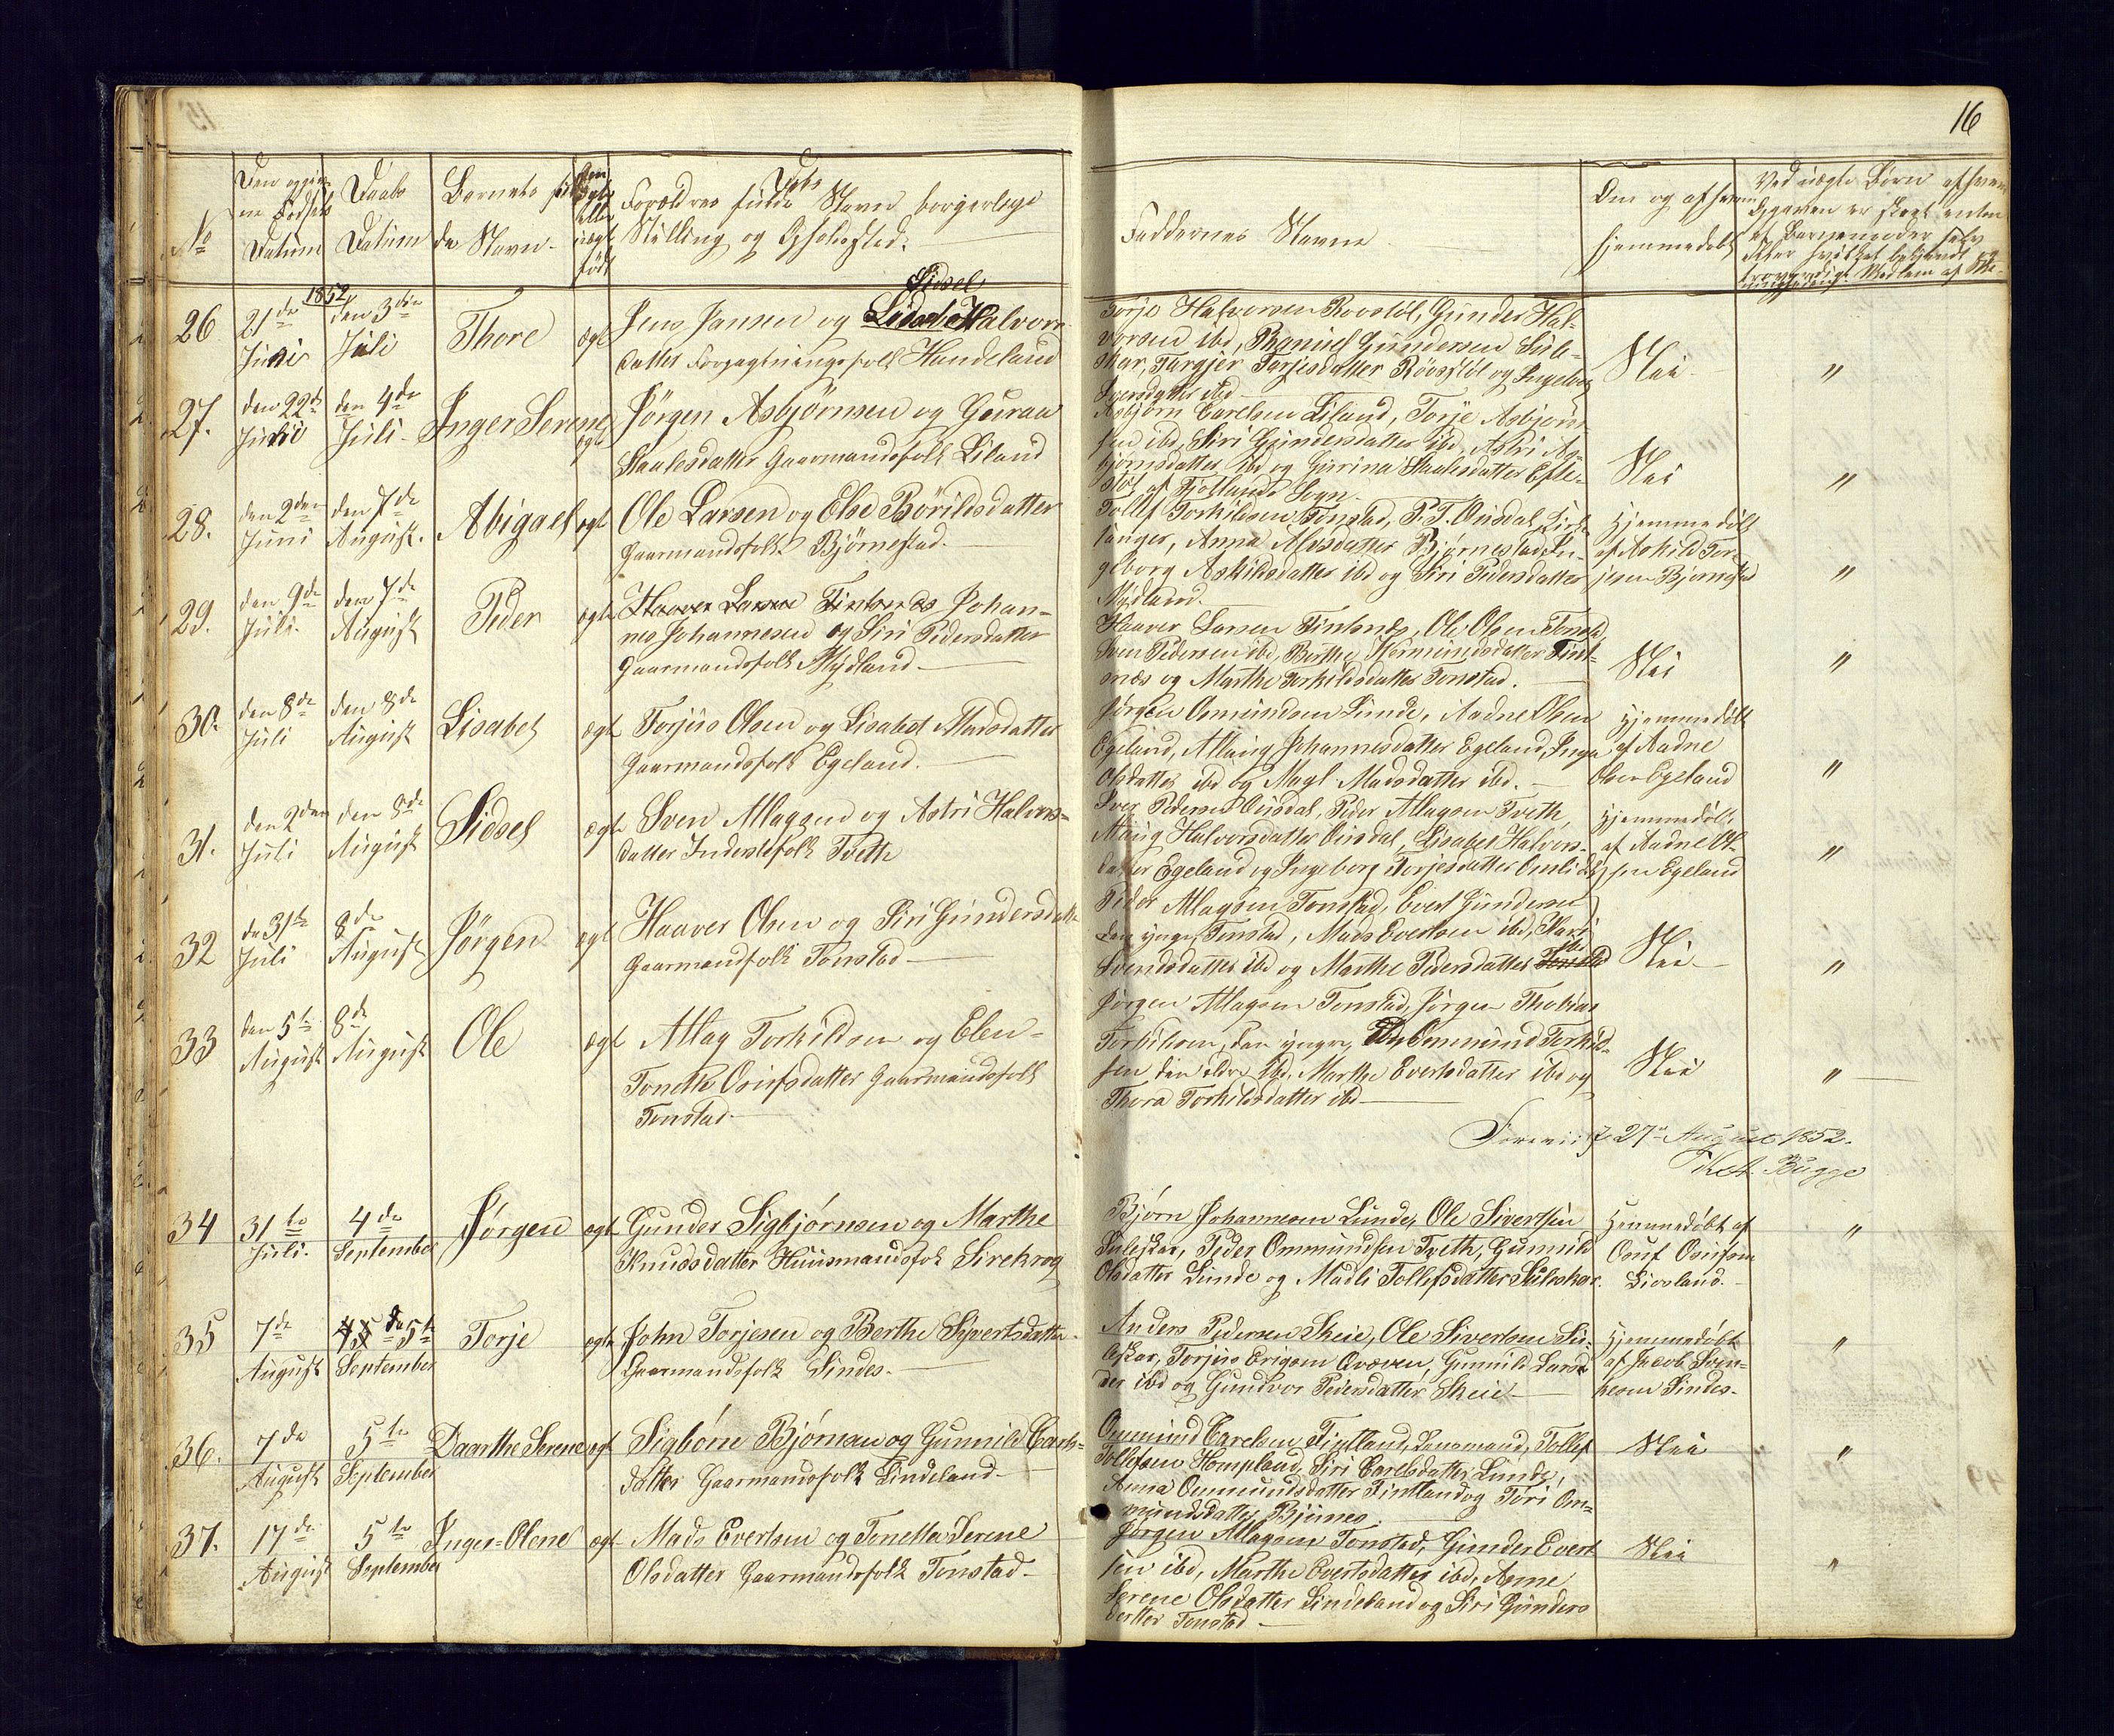 16
No
Den opgiv-
ne Fødsels
Datum
Daabs
Datum
Barnets ful-
de Navn.
Om
ægte
eller
uægt
født
Dets
Forældres fulde Navn borgerlige
Stilling og Opholdssted.
Faddernes Navne
Om og af hvem
hjemmedøbt
Ved uægte Børn af hvem
Opgaven er skeet enten
af Barnemoder selv
eller hvilket bekjendt og
troværdigt Medlem af Me-
nigheden
26
1852
21de
Juni
den 3die
Juli
Thore
ægte
Sidsel
Jens Jansen og Sidsel Halvors
datter Forpagtningsfolk Handeland
Torje Halvorsen Rovstöl, Gunder Hal-
vorsen ibd, Gundersen Sule-
skar, Torjesdatter Røvstöl og Ingeborg
Sversdatter ibd
Nei
"
27.
den 22de
Juni
den 4de
Juli
Inger Serene
ægte
Jörgen Asbjörnsen og Guran
Staalesdatter Gaarmandsfolk Liland
Asbjörn Carelsen Liland, Torje Asbjörn-
sen ibd, Siri Gundersdatter ibd, Astri As-
björnsdatter ibd og Gurina Staalesdatter Efte-
stöl af Fjotlands Sogn.
Nei
"
28.
den 2den
Juni
den 7de
August.
Abigael
ægte
Ole Larsen og Else Börildsdatter
Gaarmandsfolk Björnestad.
Tollef Torkildsen Tonstad, P. T. Ousdal, Kirke-
sanger, Anna Alvsdatter Bjørnestad, In-
geborg Askildsdatter ibd og Siri Pedersdatter
Mydland.
Hjemmedøbt
af Askild Tor-
jesen Bjørnestad
"
29.
den 9de
Juli.
den 7de
August
Peder
ægte
Haaver Larsen Fintsnæs Johan-
nes Johannesen og Siri Pedersdatter
Gaarmandsfolk Mydland
Haaver Larsen Fintsnæs, Ole Olsen Tonstad,
Sven Pedersen ibd, Berthe Hermundsdatter Fint-
snæs og Marthe Torkildsdatter Tonstad.
Nei
"
30.
den 8de
Juli
den 8de
August
Lisabet
ægte
Torjus Olsen og Lisabet Madsdatter
Gaarmandsfolk Egeland.
Jörgen Osmundsen Lunde, Aadne Olsen
Egeland, Allaug Johannesdatter Egeland, Inga
Olsdatter ibd og Magl Madsdatter ibd.
Hjemmedøbt
af Aadne
Olsen Egeland
"
31.
den 2den
Juli
den 8de
August
Sidsel
ægte
Sven Atlagsen og Astri Halvors-
datter Inderstefolk Tveth
Sven Pedersen Ousdal, Peder Atlagsen Tveth,
Allaug Halvorsdatter Ousdal, Lisabet Halvors-
datter Egeland og Ingeborg Torjesdatter Omlid
Hjemmedøbt
af Aadne Ol-
sen Egeland
"
32
de 31te
Juli
8de
August
Jörgen
ægt
Haaver Olsen og Siri Gundersdatter
Gaarmandfolk Tonstad
Peder Atlagsen Tonstad, Evert Gundersen
den yngre, Tonstad, Mads Evertsen ibd, Kari
Svendsdatter ibd og Marthe Pedersdatter Tonstad ibd
Nei
"
33
den 5te
August
8de
August
Ole
ægt
Atlag Torkildsen og Elen-
Tonette Osufsdatter Gaarmandsfolk
Tonstad.
Jörgen Atlagsen Tonstad, Jörgen Thobias
Torkildsen, den yngre, ibd, Ommund Torkild-
sen den eldre ibd, Marthe Evertsdatter ibd og
Thora Torkildsdatter ibd
Nei
"
Foreviist 27de August 1852.
Bugge
34
31te
Juli.
4de
September
Jörgen
ægte
Gunder Sigbjörnsen og Marthe
Knudsdatter Huusmandsfolk Sirekrog
Bjørn Johannesen Lunde, Ole Sivertsen
Suleskar, Peder Ommundsen Tveth, Gunnild
Olsdatter Lunde og Madli Tollefsdatter Suleskar.
Hjemmedøbt af
Osuf Osufsen
Liosland.
"
35
7de
August
5te
September
Torje
ægte
John Torjesen og Berthe Syvertsdatter
Gaarmandsfolk Sindes.
Anders Pedersen Skeie, Ole Sivertsen Su-
leskar, Torjus Erigsen Qvæven, Gunnild Larsdat-
ter ibd og Gundvor Pedersdatter Skeie
Hjemmedøbt
af Jacob Sven-
kesen Sindes.
"
36.
7de
August
5te
September
Daarthe Serene
ægt
Sigbörn Björnsen og Gunnild Carls-
datter Gaarmandsfolk Lindeland.
Ommund Carelsen Fintland, Lensmand, Tollef
Tollefsen Hompland, Siri Carelsdatter Lunde,
Anna Ommundsdatter Fintland og Tori Om-
mundsdatter Bjunes.
Nei
"
37.
17de
August
5te
September
Inger=Olene
ægt
Mads Evertsen og Tonetta Serene
Olsdatter Gaarmandsfolk Tonstad.
Jörgen Atlagsen Tonstad, Gunder Evert
sen ibd, Marthe Evertsdatter ibd, Anne
Serene Olsdatter Lindeland og Siri Gunders
datter Tonstad
Nei
"